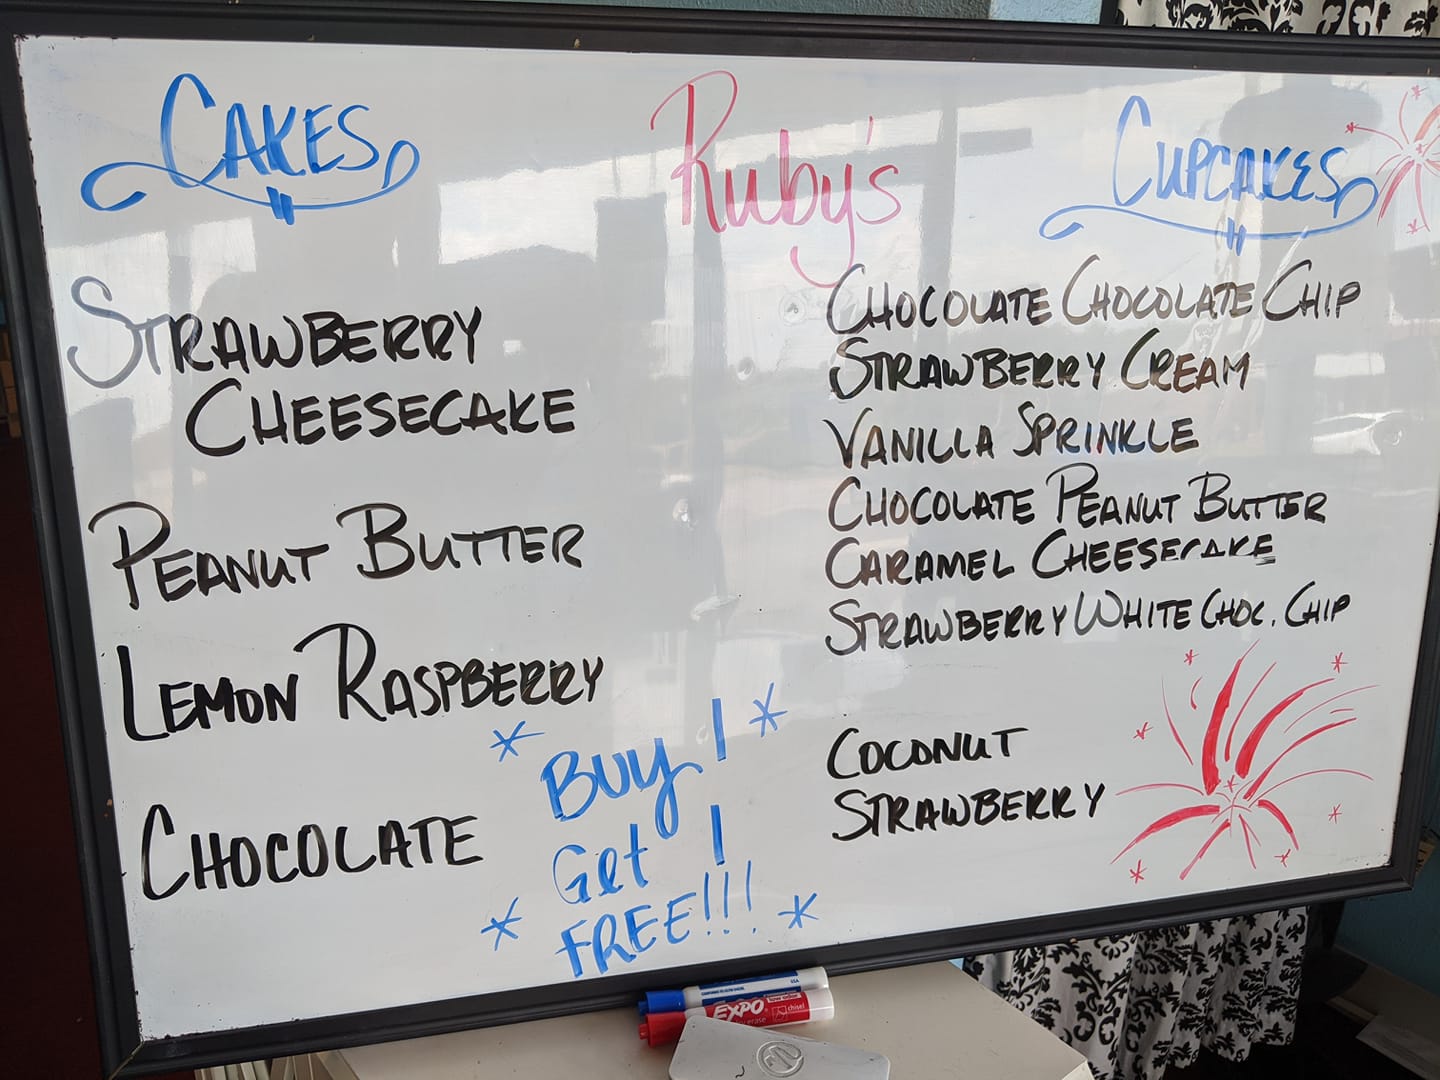 CAKES
Ruby's
CUPCAKES
STRAWBERRY
CHEESECAKE
PEANUT BUTTER
LEMON RASPBERRY
CHOCOLATE
* BUY 1 *
Get 1
* FREE!!! *
CHOCOLATE CHOCOLATE CHIP
STRAWBERRY CREAM
VANILLA SPRINKLE
CHOCOLATE PEANUT BUTTER
CARAMEL CHEESECAKE
STRAWBERRY WHITE CHOC. CHIP
COCONUT
STRAWBERRY
EXPO
chisel